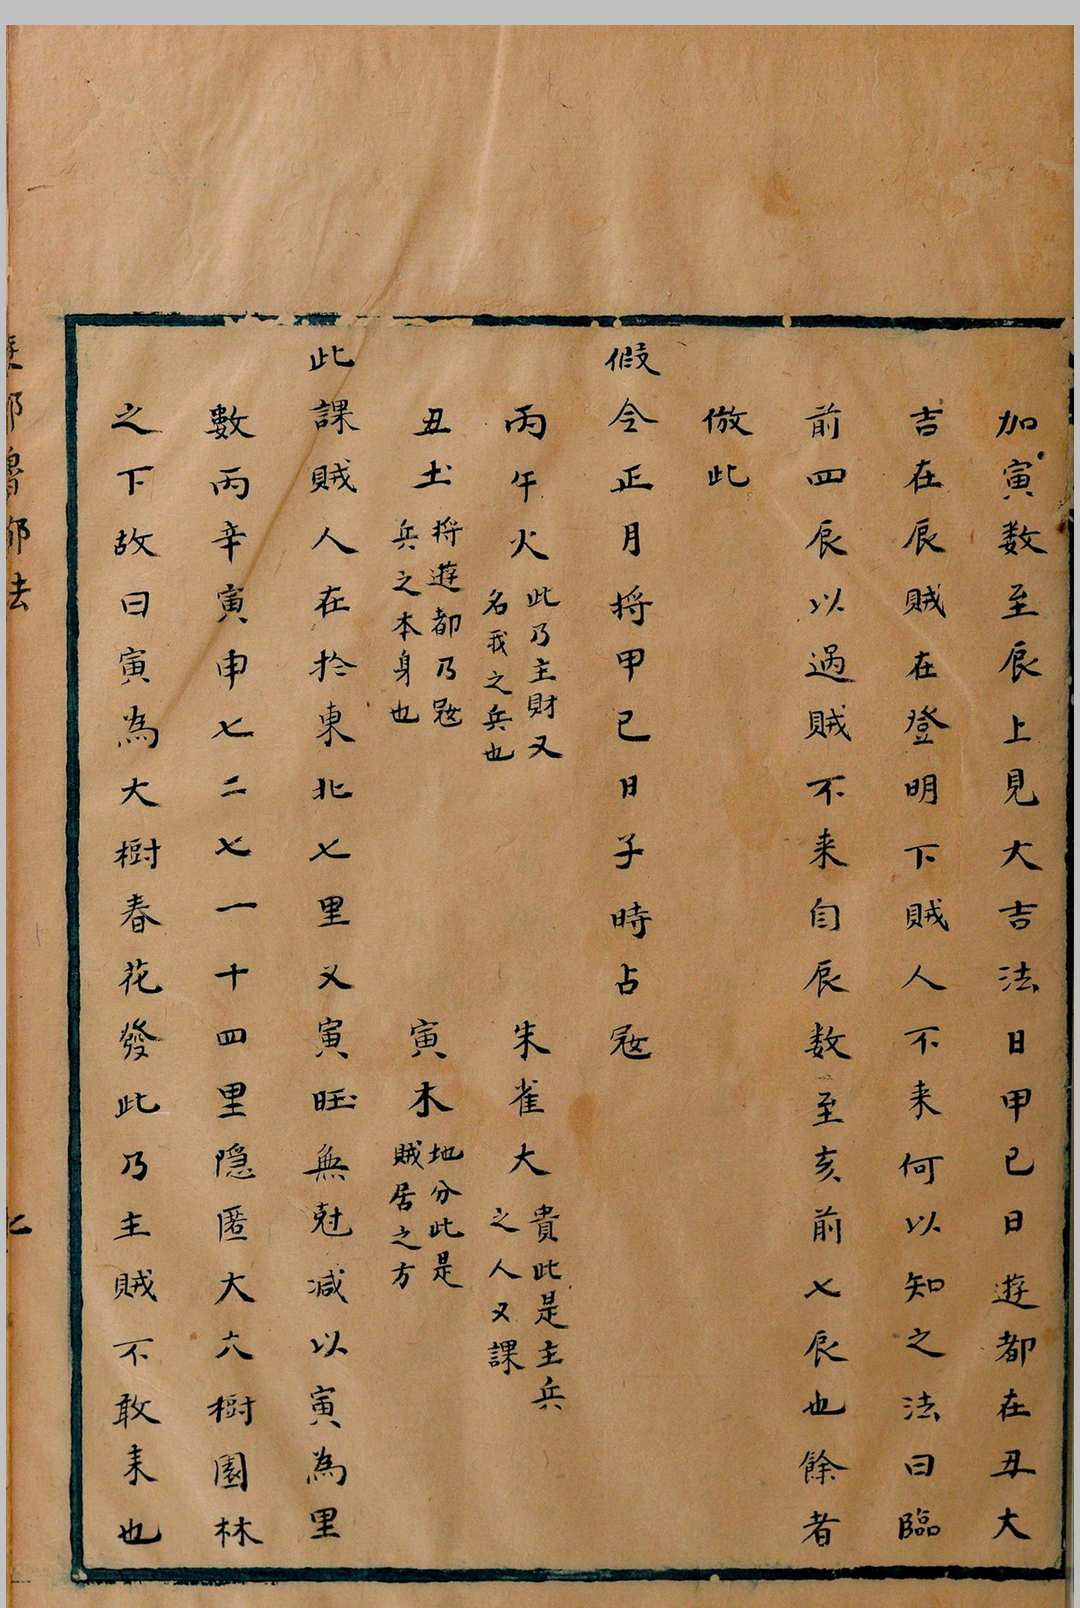 加寅数至辰上見大吉法日甲己日遊都在丑大
吉在辰賊在登明下賊人不来何以知之法曰臨
前四辰以過賊不来自辰数至亥前七辰也餘者
倣此
假令正月将甲己日子時占冦
丙午火
此乃主財又
名我之兵也
朱雀大
貴此是主兵
之人又課
丑土
将遊都乃冦
兵之本身也
寅木
地分此是
賊居之方
此課賊人在於東北七里又寅旺無尅减以寅為里
數丙辛寅申七二七一十四里隠匿大六樹園林
之下故曰寅為大樹春花發此乃主賊不敢来也
都魯都法
七